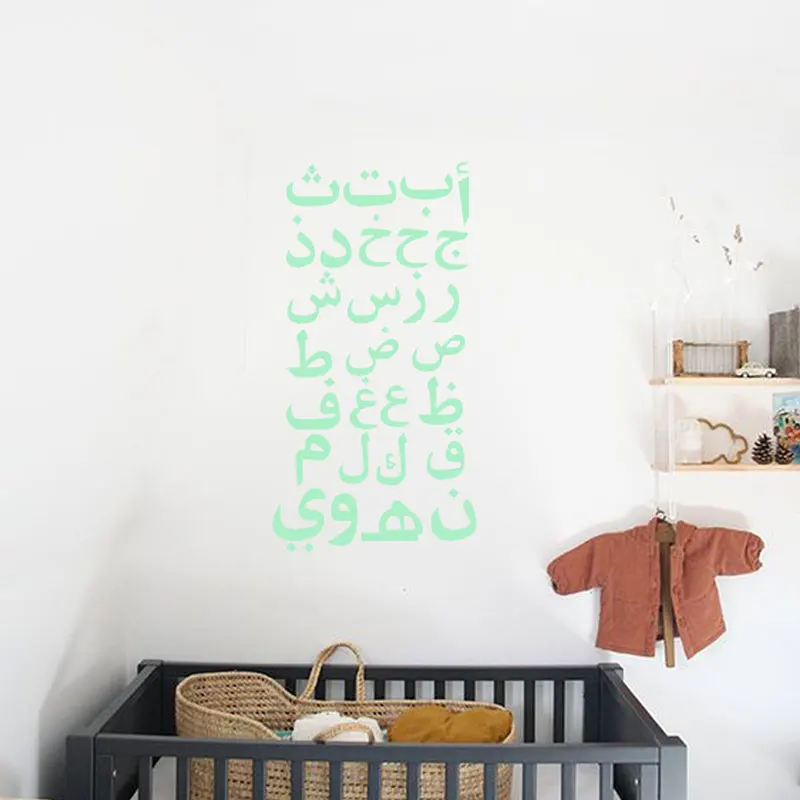 أ ب ت ث
ج ح خ د ذ
ر ز س ش
ص ض ط
ظ ع غ ف
ق ك ل م
ن ه و ي